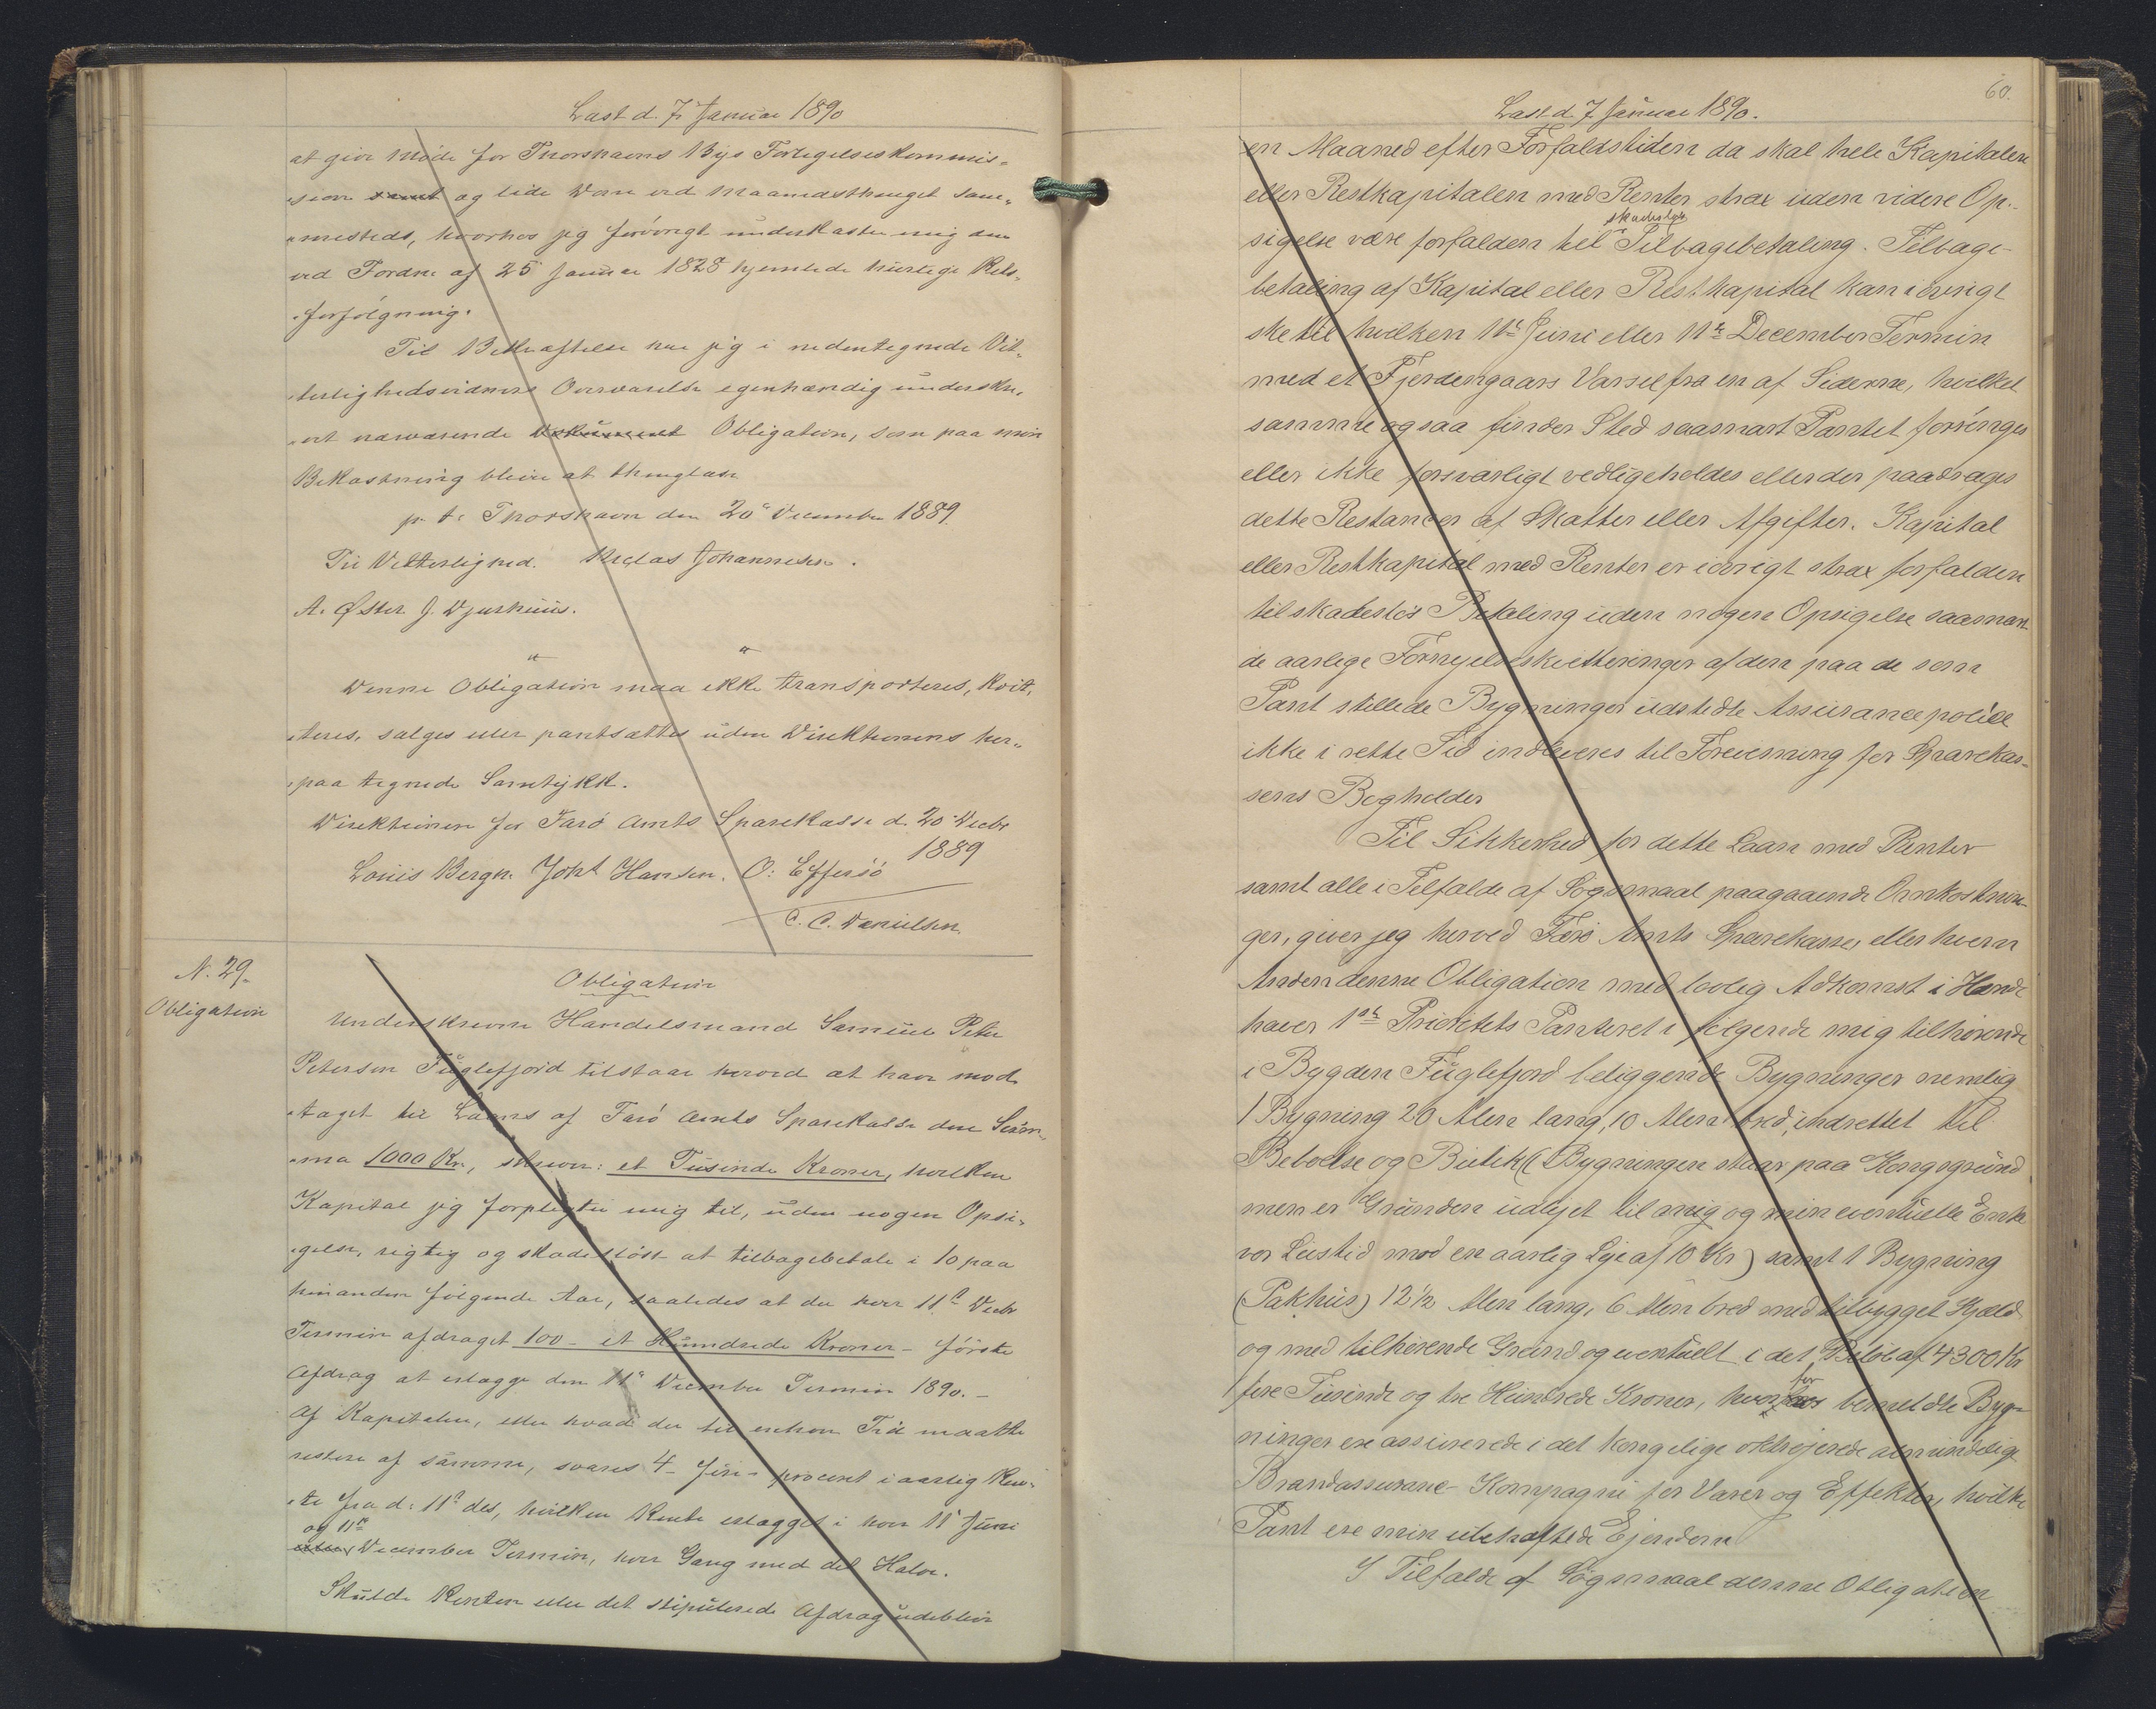 Læst d. 7 Januar 1890
at give Møde for Thorshavns Byes Forligelseskommis-
sion samt og lide Dom ved Maanedsthinget sam-
mesteds, hvorhos jeg forøvrigt underkaster mig den
ved Fordn. af 25 Januar 1828 hjemlede hurtige Rets-
forfølgning.
Til Bekræftelse har jeg i nedentegnede Vit-
terlighedsvidners Overværelse egenhændig underskre-
vet nærværende Dokument Obligation, som paa min
Bekostning bliver at thinglæse
p. t. Thorshavn den 20 December 1889.
Til Vitterlighed. Niclas Johannesen.
A. Øster J. Djurhuus.
Denne Obligation maa ikke transporteres, kvit-
teres, sælges eller pantsættes uden Direktionens her-
paa tegnede Samtykke.
Direktionen for Færø Amts Sparekasse d. 20 Decbr
1889
Louis Bergh. Joh. Hansen. O: Effersö
C. C. Danielsen.
N. 29.
Obligation
Obligation
Underskrevne Handelsmand Samuel Peter
Petersen Fuglefjord tilstaar herved at have mod-
taget til Laans af Færö Amts Sparekasse den Sum-
ma 1000 Kr., skriver: et Tusinde Kroner, hvilken
Kapital jeg forpligter mig til, uden nogen Opsi-
gelse, rigtig og skadesløst at tilbagebetale i 10 paa
hinanden følgende Aar, saaledes at der hver 11te Decbr
Termin afdraget 100 - et Hundrede Kroner - förste
Afdrag at erlægge den 11te December Termin 1890. -
Af Kapitalen, eller hvad der til enhver Tid maatte
restere af samme, svares 4 - fire - procent i aarlig Ren-
te fra d: 11te ds, hvilken Rente erlægges i hver 11te Juni
og 11te
eller December Termin, hver Gang med det Halve.
Skulde Renten eller det stipulerede Afdrag udeblive
60.
Læst d. 7 Januar 1890.
en Maaned efter Forfaldstiden da skal hele Kapitalen
eller Restkapitalen med Renter strax uden videre Op-
skadesløs
sigelse være forfalden til Tilbagebetaling. Tilbage-
betaling af Kapital eller Restkapital kan iøvrigt
ske til hvilken 11te Juni eller 11te December Termin
med et Fjerdingaars Varsel fra en af Siderne, hvilket
samme ogsaa finder Sted saasnart Pantet forringes
eller ikke forsvarligt vedligeholdes eller der paadrages
dette Restancer af Skatter eller Afgifter. Kapital
eller Restkapital med Renter er iøvrigt strax forfalden
til skadesløs Betaling uden nogen Opsigelse saasnart
de aarlige Fornyelseskvitteringer af den paa de som
Pant stillede Bygninger udstedte Assurancepolice
ikke i rette Tid indleveres til Forevisning for Sparekas-
sens Bogholder
Til Sikkerhed for dette Laan med Renter
samt alle i Tilfælde af Sögsmaal paagaaende Omkostnin-
ger, giver jeg herved Færö Amts Sparekasse, eller hvem
Anden denne Obligation med lovlig Adkomst i Hænde
haver 1ste Prioritets Panteret i følgende mig tilhørende
i Bygden Fuglefjord beliggende Bygninger nemlig
1 Bygning 20 Alen lang, 10 Alen bred, indrettet til
Beboelse og Butik (Bygningen staar paa Kongsgrund
men er Grunden udlejet til mig og min eventuelle Enke
vor Livstid mod en aarlig Leje af 10 Kr) samt 1 Bygning
(Pakhus) 12½ Alen lang, 6 Alen bred med tilbygget Hjæld
og med tilhørende Grund og eventuelt i det Beløb af 4300 Kr
fire Tusinde og tre Hundrede Kroner, hvorfor bemeldte Byg-
ninger ere assurerede i det kongelige oktrojerede almindelige
Brandassurance-Kompagni for Varer og Effekter, hvilke
Pant ere min ubehæftede Ejendom
I Tilfælde af Søgsmaal denne Obligation